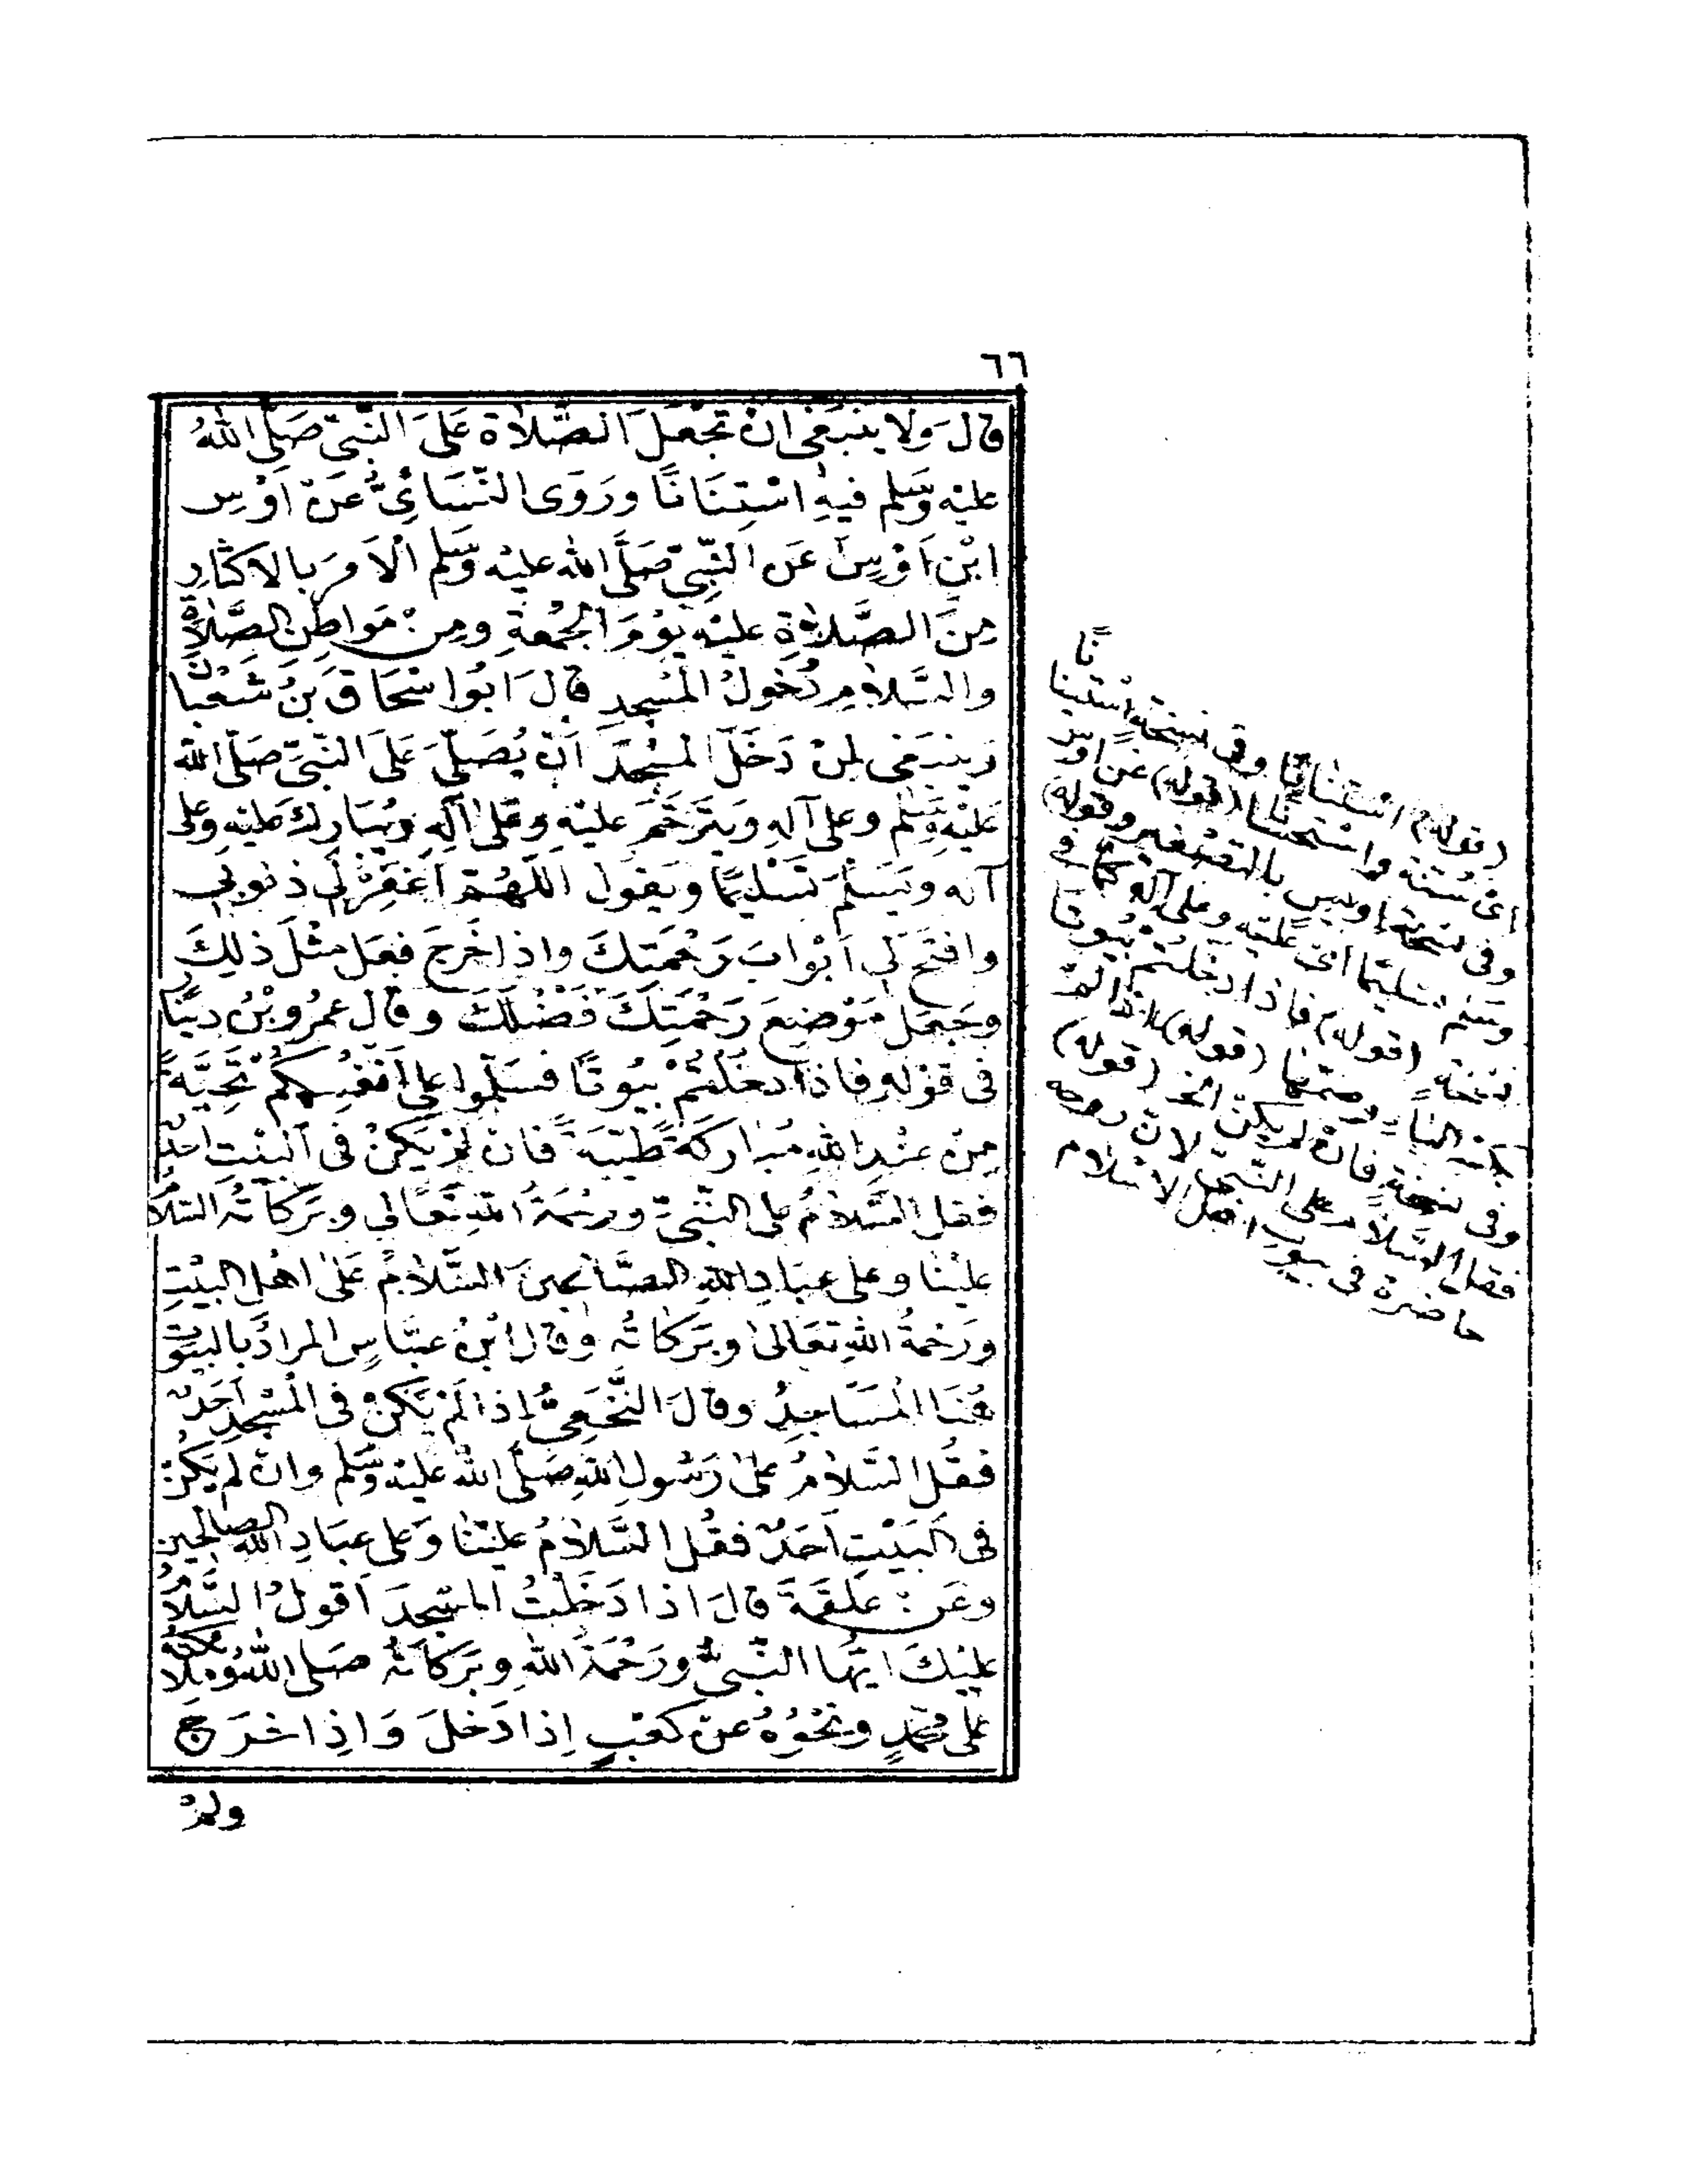 ٦٦
قَالَ وَلَا يَنْبَغِي أَنْ تُجْعَلَ الصَّلَاةُ عَلَى النَّبِيِّ صَلَّى اللهُ
عليْه وَسَلم فيهِ اسْتِنَانًا ورَوَى النَّسَائِيُّ عَنْ اَوْسِ
ابْنِ اَوْسٍ عَنِ النَّبِيِّ صَلَّى الله عليْه وَسَلم الْاَمْرَ بالاكثارِ
مِنَ الصَّلَاةِ عليْه يَوْمَ الْجُمُعَةِ ومِنْ مَوَاطِنِ الصَّلَاةِ
والسَّلَامِ دُخُولُ الْمَسْجِدِ قَالَ اَبُو اسْحَاقَ بْنُ شَعْبَانَ
وَيَنْبَغِى لِمَنْ دَخَلَ الْمَسْجِدَ اَنْ يُصَلِّيَ عَلَى النَّبِيِّ صَلَّى الله
عَلَيْهِ وَسَلم وعلى آلِهِ وَيَتَرَحَّمَ عليْهِ وَعَلَى آلِهِ وَيُبَارِكَ عليْهِ وَعَلى
آله وَيُسَلِّمَ تَسْلِيمًا ويَقولَ اللّٰهُمَّ اغْفِرْ لِي ذنوبي
وافْتَحْ لِي اَبْوَابَ رَحْمَتِكَ واِذا خَرَجَ فعَلَ مِثْلَ ذلِكَ
وجَعَلَ مَوْضِعَ رَحْمَتِكَ فَضْلِكَ وقَالَ عَمْرُو بْنُ دِينَارٍ
فى قَوْلِهِ فاذا دَخَلْتُمْ بُيُوتًا فسَلِّمُوا على اَنْفُسِكُمْ تَحِيَّةً
مِنْ عِنْدِ اللهِ مُبَارَكَةً طَيِّبَةً فانْ لم يَكُنْ فى الْبَيْتِ احَدٌ
فقل السَّلَامُ على النَّبِيِّ ورَحْمَةُ اللهِ تَعَالى وبَرَكَاتُه السَّلَامُ
عليْنَا وعلى عِبَادِ اللهِ الصَّالِحِينَ السَّلَامُ عَلَى اهْلِ الْبَيْتِ
ورَحْمَةُ اللهِ تَعَالى وبَرَكَاتُه وقال ابْنُ عَبَّاسٍ المرادُ بالْبُيُوتِ
هُنَا الْمَسَاجِدُ وقالَ النَّخَعِيُّ إذا لَمْ يَكُنْ فى الْمَسْجِدِ اَحَدٌ
فقُلِ السَّلَامُ على رَسُولِ اللهِ صَلَّى الله عليْه وَسَلم وانْ لَمْ يَكُنْ
فى الْبَيْتِ اَحَدٌ فقُلِ السَّلَامُ عليْنَا وَعلى عِبَادِ اللهِ الصالحين
وعَنْ عَلْقَمَةَ قالَ اذا دَخَلْتُ الْمَسْجِدَ اَقولُ السَّلَامُ
عليْكَ ايُّهَا النَّبِيُّ ورَحْمَةُ اللهِ وبَرَكَاتُهُ صَلَّى اللهُ وملائكته
على محمَّدٍ ونَحْوُهُ عَنْ كَعْبٍ اِذا دَخَلَ وَاِذا خَرَجَ
ولم
(قوله) استنانًا وفى نسخة استينا
نًا
اى سُنّة (قوله) عن اوس
وفى نسخة اويس بالتصغير وقوله
وسلم تسليما اى عليه وعلى آله كما فى
نسخة (قوله) فاذا دخلتم بيوتا
وضمّها (قوله)
وفى نسخة فان لم يكن الخ (قوله)
فقل السّلام على النّبىّ لانّ روحه
حاضرة فى بيوت اهل الاسلام